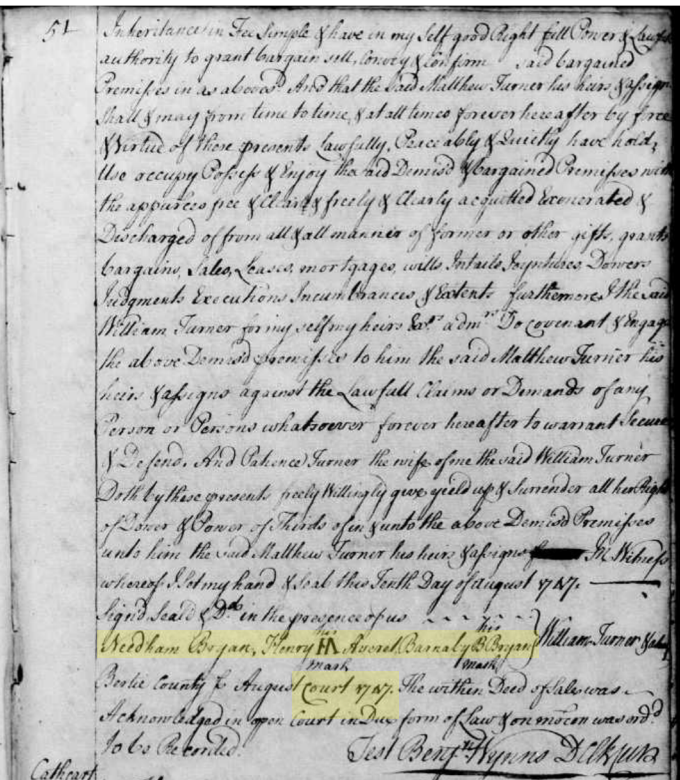 51 Inheritance in Fee Simple & have in my Self good Right full Power & Lawfull
authority to grant bargain sell, Convey & Confirm said bargained
Premisses in as aboves.d And that the said Matthew Turner his heirs & assigns
shall & may from time to time, & at all times forever hereafter by force
& Virtue of these presents Lawfully, Peaceably & Quietly have hold,
Use occupy Posess & Enjoy the said Demisd & bargained Premisses with
the appurces free & Clear & freely & Clearly acquitted Exonerated &
Discharged of from all & all manner of former or other gifts, grants
bargains, Sales, Leases, mortgages, wills Intails Joyntures, Dowers
Judgments Executions Incumbrances & Extents furthermore I the said
William Turner for my self my heirs Exrs admrs Do covenant & Engage
the above Demisd premisses to him the said Matthew Turner his
heirs & assigns against the Lawfull Claims or Demands of any
Person or Persons whatsoever forever hereafter to warrant Secure
& Defend. And Patience Turner the wife of me the said William Turner
Doth by these presents freely Willingly give yield up & Surrender all her Right
of Dower & Power of Thirds of in & unto the above Demisd Premisses
unto him the said Matthew Turner his heirs & assigns In Witness
whereof I Set my hand & Seal this Tenth Day of August 1747.
Signd Seald & Dd in the presence of us
Needham Bryan, Henry his H mark Averet, Barnaby his B mark Bryan William Turner & seal
Bertie County Ss August Court 1747. The within Deed of Sale was
Acknowledged in open Court in Due form of Law & on motion was ordd
to be Recorded. Test Benjn Wynns D Clk
Cathcart